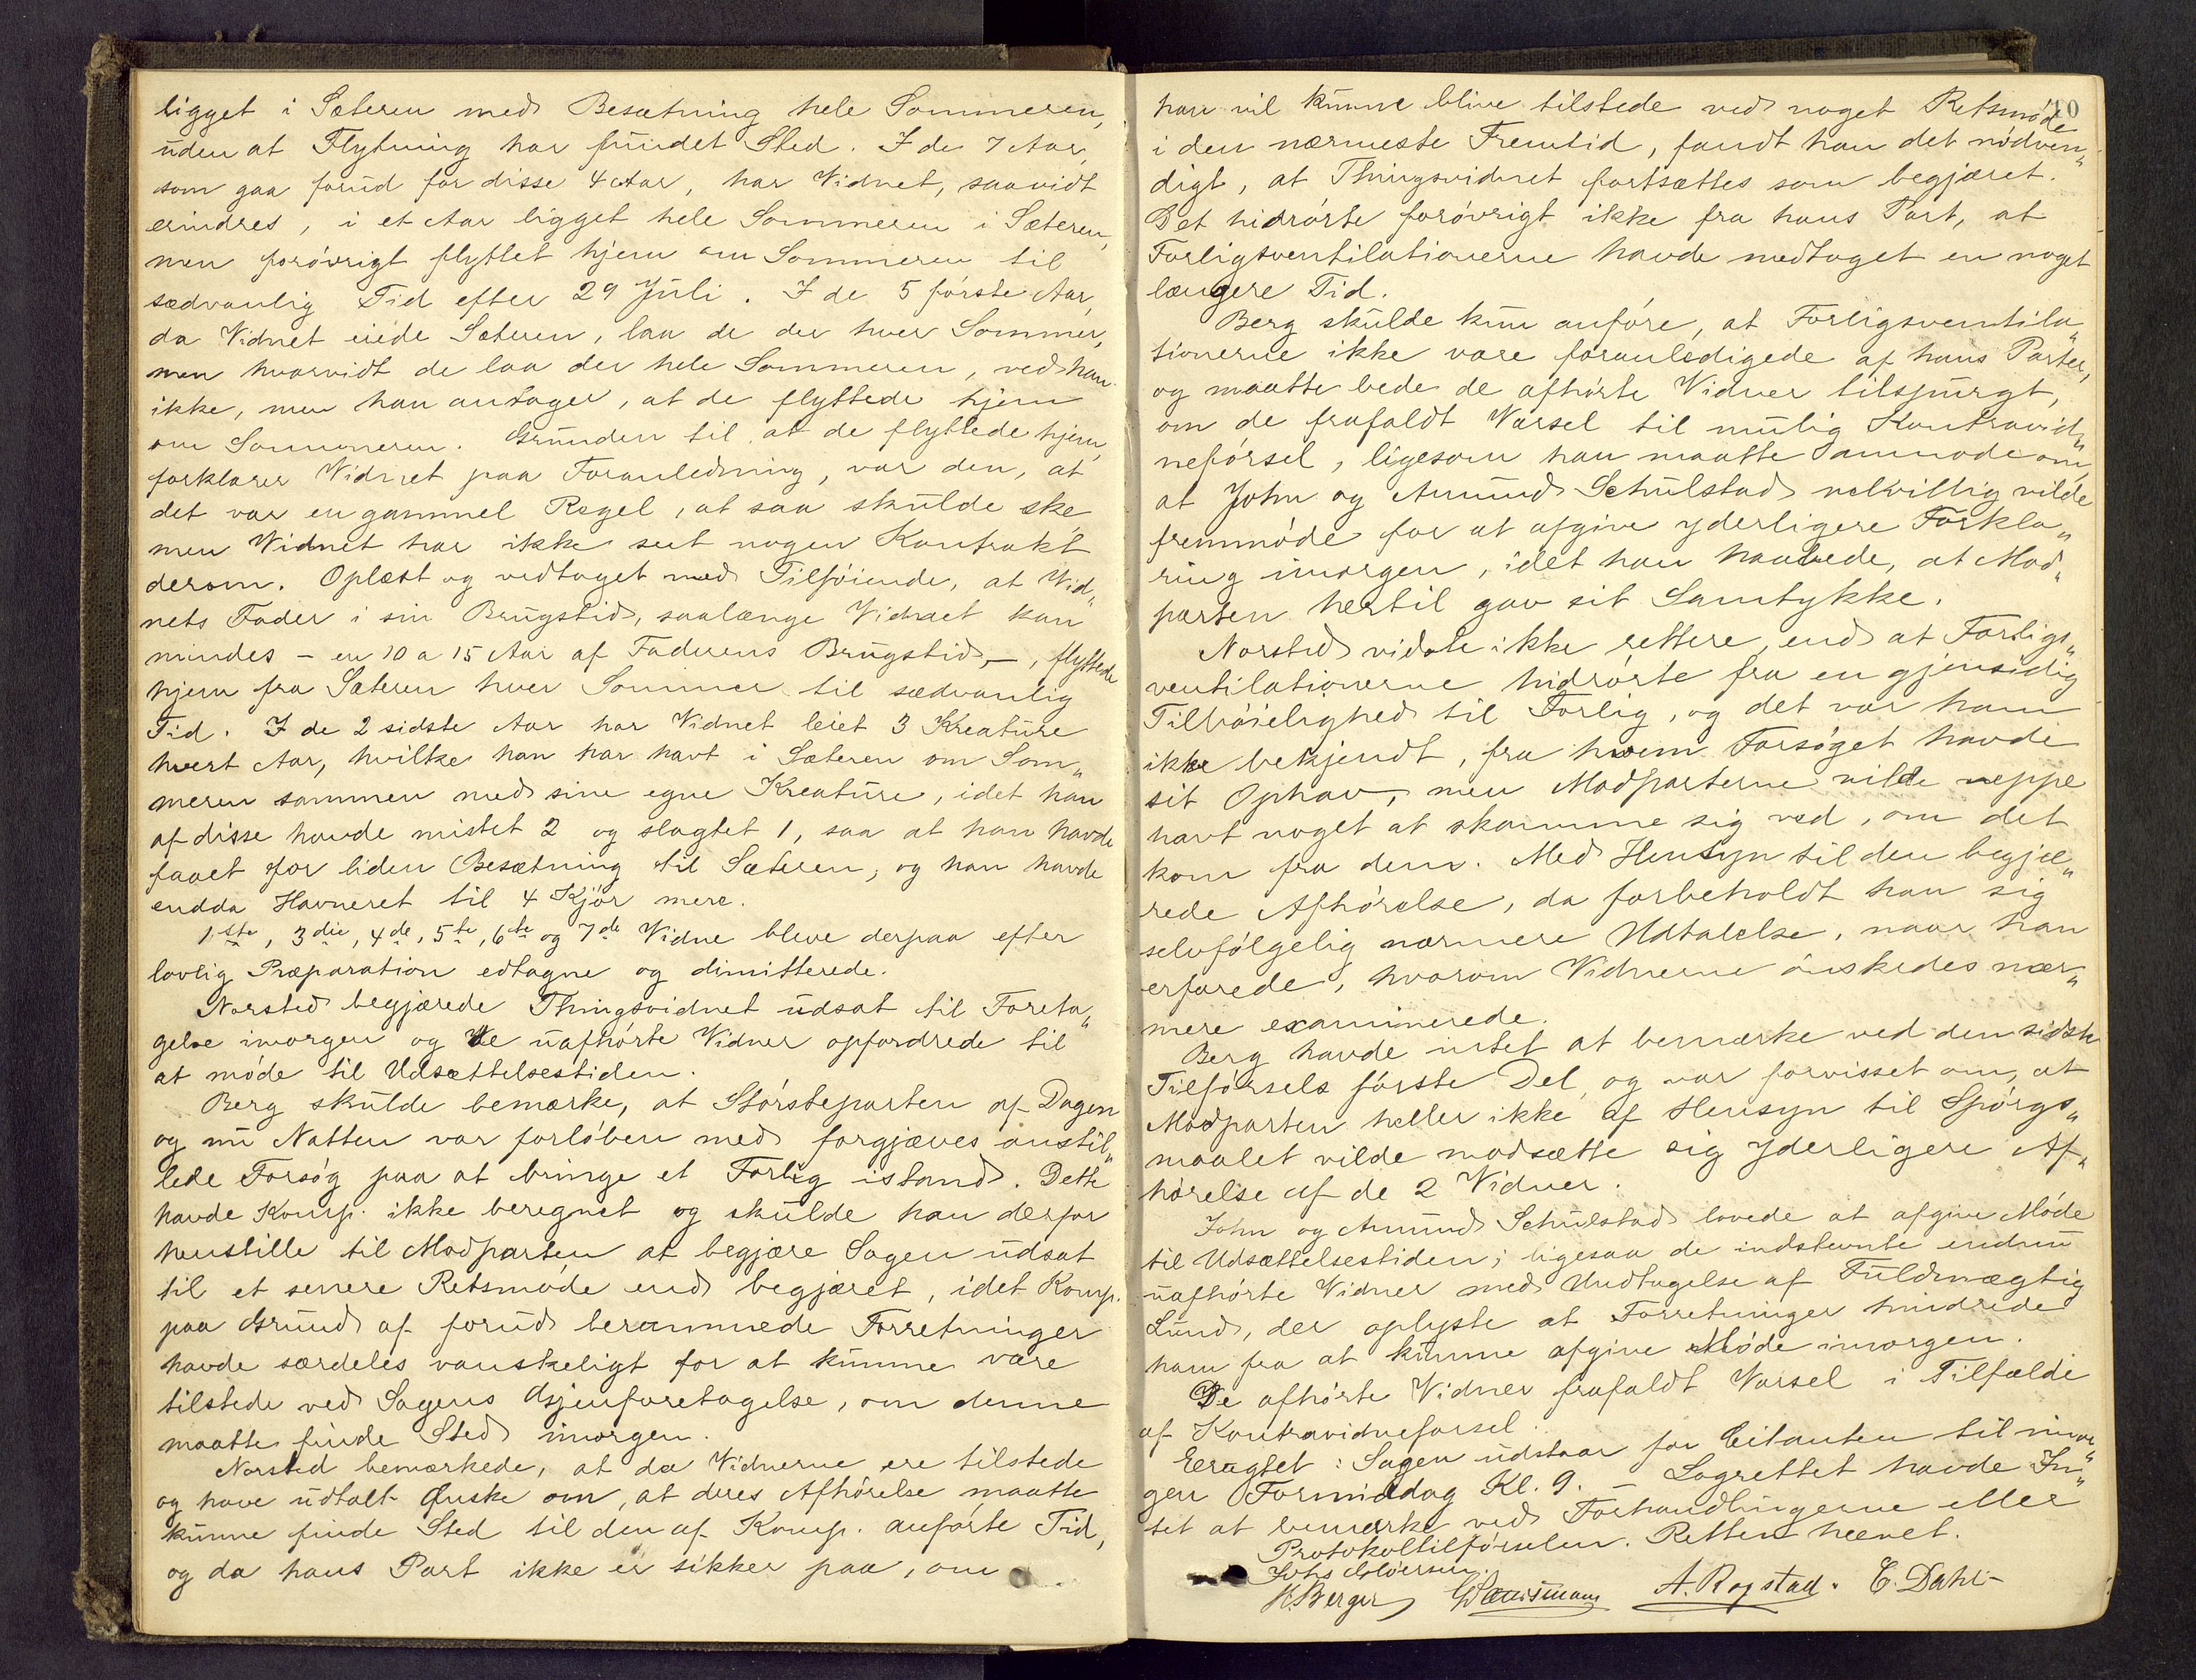 ligget i Sæteren med Besætning hele Sommeren,
uden at Flytning har fundet Sted. I de 7 Aar,
som gaa forud for disse 4 Aar, har Vidnet, saavidt
erindres, i et Aar ligget hele Sommeren i Sæteren,
men forøvrigt flyttet hjem om Sommeren til
sædvanlig Tid efter 29 Juli. I de 5 første Aar,
da Vidnet eiede Sæteren, laa de der hver Sommer,
men hvorvidt de laa der hele Sommeren, ved han
ikke, men han antager, at de flyttede hjem
om Sommeren. Grunden til, at de flyttede hjem,
forklarer Vidnet paa Foranledning, var den, at
det var en gammel Regel, at saa skulde ske,
men Vidnet har ikke seet nogen Kontrakt
derom. Oplæst og vedtaget med Tilføiende, at Vid„
nets Fader i sin Brugstid, saalænge Vidnet kan
mindes – en 10 a 15 Aar af Faderens Brugstid, –, flyttede
hjem fra Sæteren hver Sommer til sædvanlig
Tid. I de 2 sidste Aar har Vidnet leiet 3 Kreature
hvert Aar, hvilke han har havt i Sæteren om Som„
meren sammen med sine egne Kreature, idet han
af disse havde mistet 2 og slagtet 1, saa at han havde
faaet for liden Besætning til Sæteren, og han havde
endda Havneret til 4 Kjør mere.
1ste, 3die, 4de, 5te, 6te og 7de Vidne bleve derpaa efter
lovlig Præparation edtagne og dimitterede.
Norsted begjærede Thingsvidnet udsat til Foreta„
gelse imorgen og de uafhørte Vidner opfordrede til
at møde til Udsættelsestiden.
Berg skulde bemærke, at Størsteparten af Dagen
og nu Natten var forløben med forgjæves anstil„
lede Forsøg paa at bringe et Forlig istand. Dette
havde Komp. ikke beregnet og skulde han derfor
henstille til Modparten at begjære Sagen udsat
til et senere Retsmøde end begjæret, idet Komp.
paa Grund af forud berammede Forretninger
havde særdeles vanskeligt for at kunne være
tilstede ved Sagens Gjenforetagelse, om denne
maatte finde Sted imorgen.
Norsted bemærkede, at da Vidnerne ere tilstede
og have udtalt Ønske om, at deres Afhørelse maatte
kunne finde Sted til den af Komp. anførte Tid,
og da hans Part ikke er sikker paa, om
10
han vil kunne blive tilstede ved noget Retsmøde
i den nærmeste Fremtid, fandt han det nødven„
digt, at Thingsvidnet fortsættes som begjæret.
Det hidrørte forøvrigt ikke fra hans Part, at
Forligsventilationerne havde medtaget en noget
længere Tid.
Berg skulde kun anføre, at Forligsventila„
tionerne ikke vare foranledigede af hans Parter,
og maatte bede de afhørte Vidner tilspurgt,
om de frafaldt Varsel til mulig Kontravid„
neførsel, ligesom han maatte anmode om,
at John og Amund Schulstad velvillig vilde
fremmøde for at afgive yderligere Forkla„
ring imorgen, idet han haabede, at Mod„
parten hertil gav sit Samtykke.
Norsted vidste ikke rettere, end at Forligs„
ventilationerne hidrørte fra en gjensidig
Tilbøielighed til Forlig, og det var ham
ikke bekjendt, fra hvem Forsøget havde
sit Ophav, men Modparterne vilde neppe
havt noget at skamme sig ved, om det
kom fra dem. Med Hensyn til den begjæ„
rede Afhørelse, da forbeholdt han sig
selvfølgelig nærmere Udtalelse, naar han
erfarede, hvorom Vidnerne ønskedes nær„
mere examinerede.
Berg havde intet at bemærke ved den sidste
Tilførsels første Del, og var forvisset om, at
Modparten heller ikke af Hensyn til Spørgs„
maalet vilde modsætte sig yderligere Af„
hørelse af de 2 Vidner.
John og Amund Schulstad lovede at afgive Møde
til Udsættelsestiden; ligesaa de indstevnte endnu
uafhørte Vidner med Undtagelse af Fuldmægtig
Lund, der oplyste at Forretninger hindrede
ham fra at kunne afgive Møde imorgen.
De afhørte Vidner frafaldt Varsel i Tilfælde
af Kontravidneførsel.
Eragtet: Sagen udstaar for Citanten til imor„
gen Formiddag Kl. 9. – Lagrettet havde In„
tet at bemærke ved Forhandlingerne eller
Protokoltilførselen. Retten hævet.
Johs
H. Berger A. Rogstad. E. Dahl